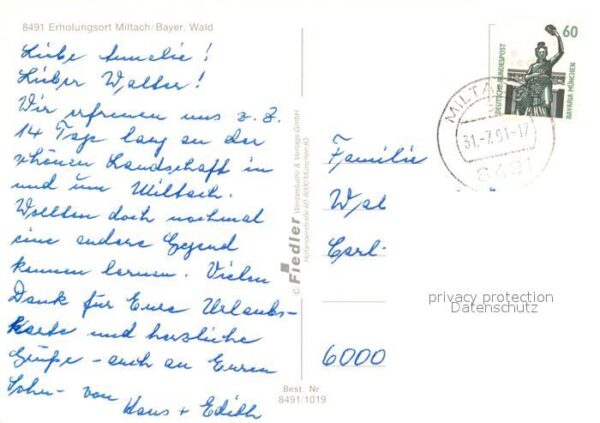 8491 Erholungsort Miltach/Bayer. Wald
Liebe Amelie!
Lieber Walter!
Wir erfreuen uns z. Z.
14 Tage lang an der
schönen Landschaft in
und um Miltach.
Wollten doch nochmal
eine andere Gegend
kennen lernen. Vielen
Dank für Eure Urlaubs-
karte und herzliche
Grüße - auch an Euren
Sohn - von
Hans + Edith
© Fiedler
Werbestudio & Verlags GmbH
Best. Nr
8491/1019
60
DEUTSCHE BUNDESPOST
BAVARIA MÜNCHEN
31.-7.91-17
8491
Familie
Carl-
6000
privacy protection
Datenschutz